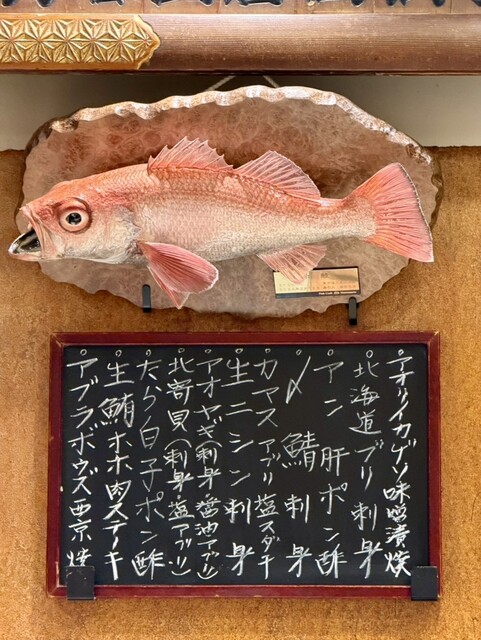 アオリイカゲソ味噌漬焼
北海道ブリ刺身
アン肝ポン酢
〆鯖刺身
カマスアブリ塩スダチ
生ニシン刺身
アオヤギ(刺身・醤油アブリ)
北寄貝(刺身・塩アブリ)
たら白子ポン酢
生鮪ホホ肉ステーキ
アブラボウズ西京焼